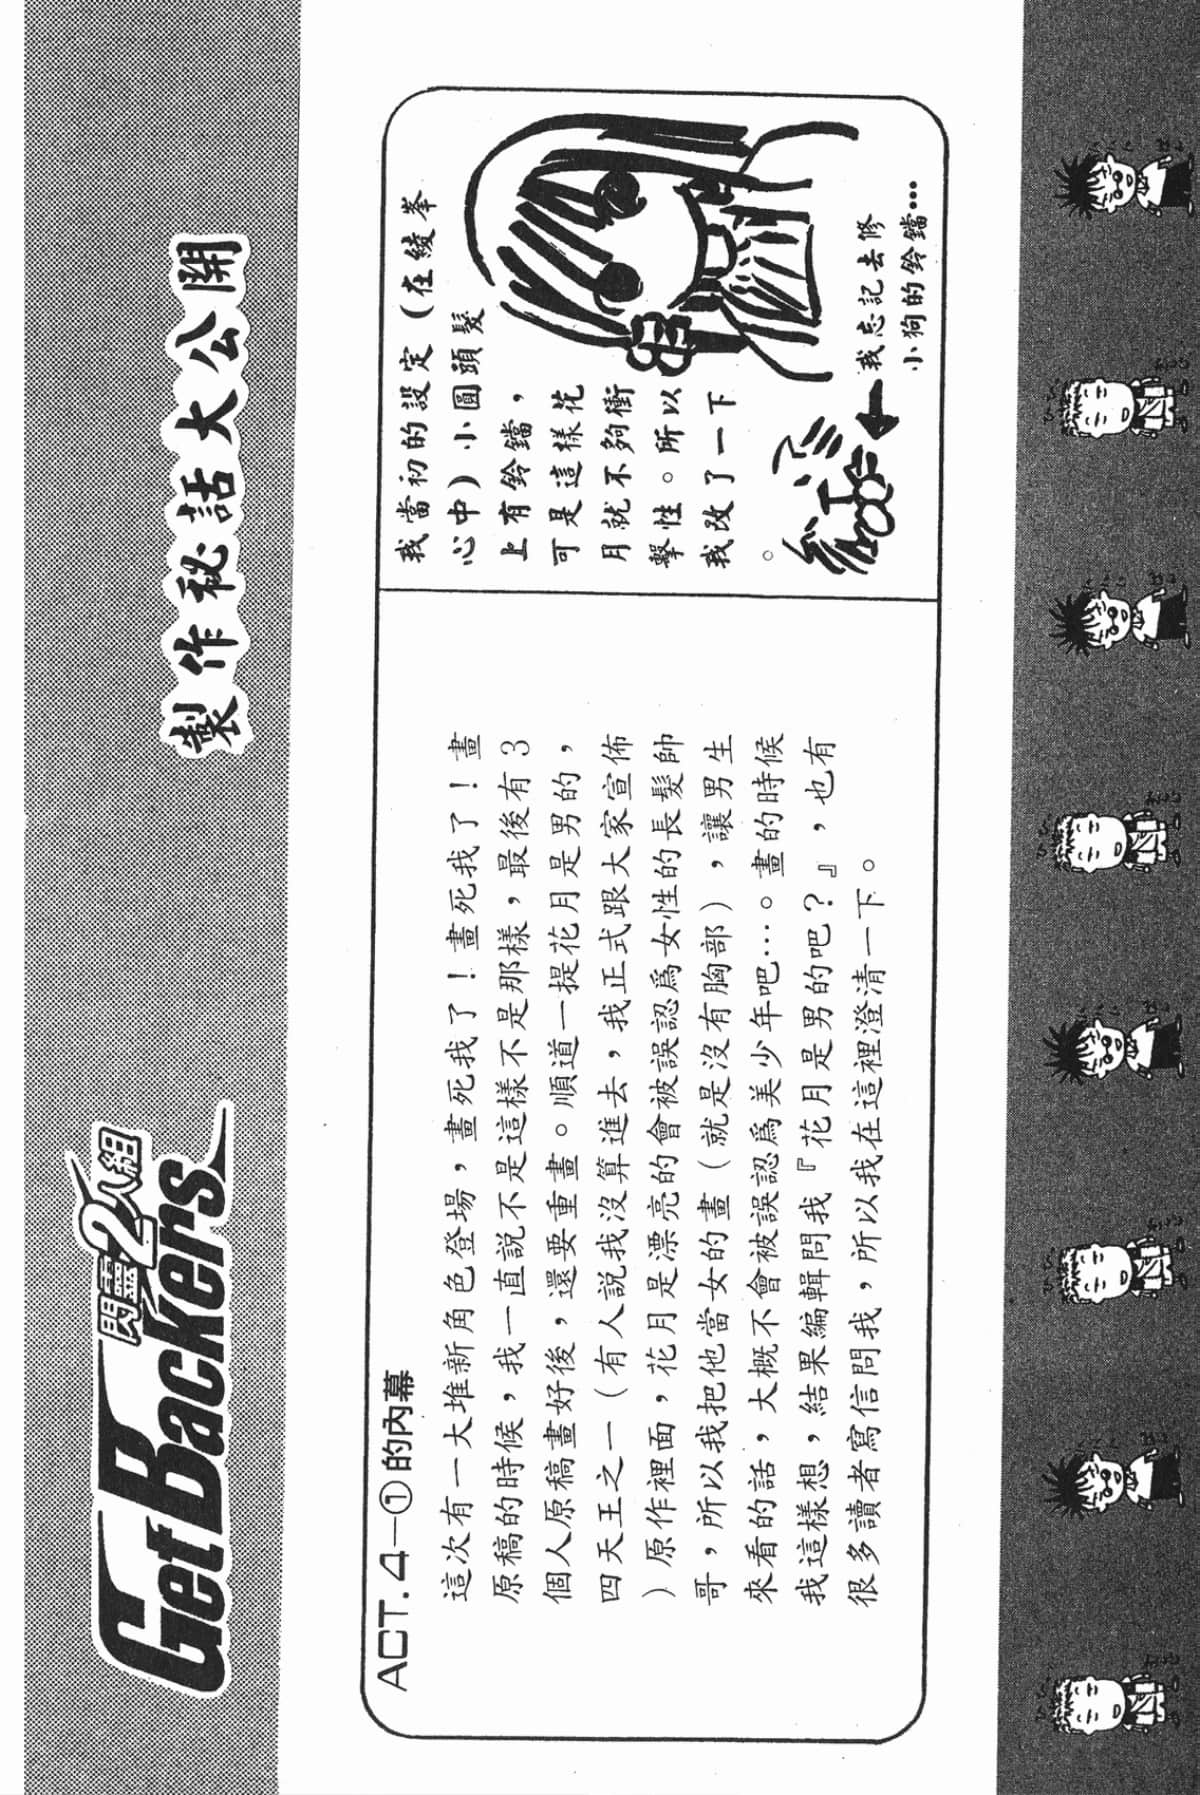 閃靈2人組
GetBackers
製作秘話大公開
ACT.4—①的內幕
這次有一大堆新角色登場，畫死我了！畫死我了！畫
原稿的時候，我一直說不是這樣不是那樣，最後有3
個人原稿畫好後，還要重畫。順道一提花月是男的，
四天王之一（有人說我沒算進去，我正式跟大家宣佈
）原作裡面，花月是漂亮的會被誤認爲女性的長髮帥
哥，所以我把他當女的畫（就是沒有胸部），讓男生
來看的話，大概不會被誤認爲美少年吧…。畫的時候
我這樣想，結果編輯問我『花月是男的吧？』，也有
很多讀者寫信問我，所以我在這裡澄清一下。
我當初的設定（在綾峯
心中）小圓頭髮
上有鈴鐺，
可是這樣花
月就不夠衝
擊性。所以
我改了一下
。
我忘記去修
小狗的鈴鐺…